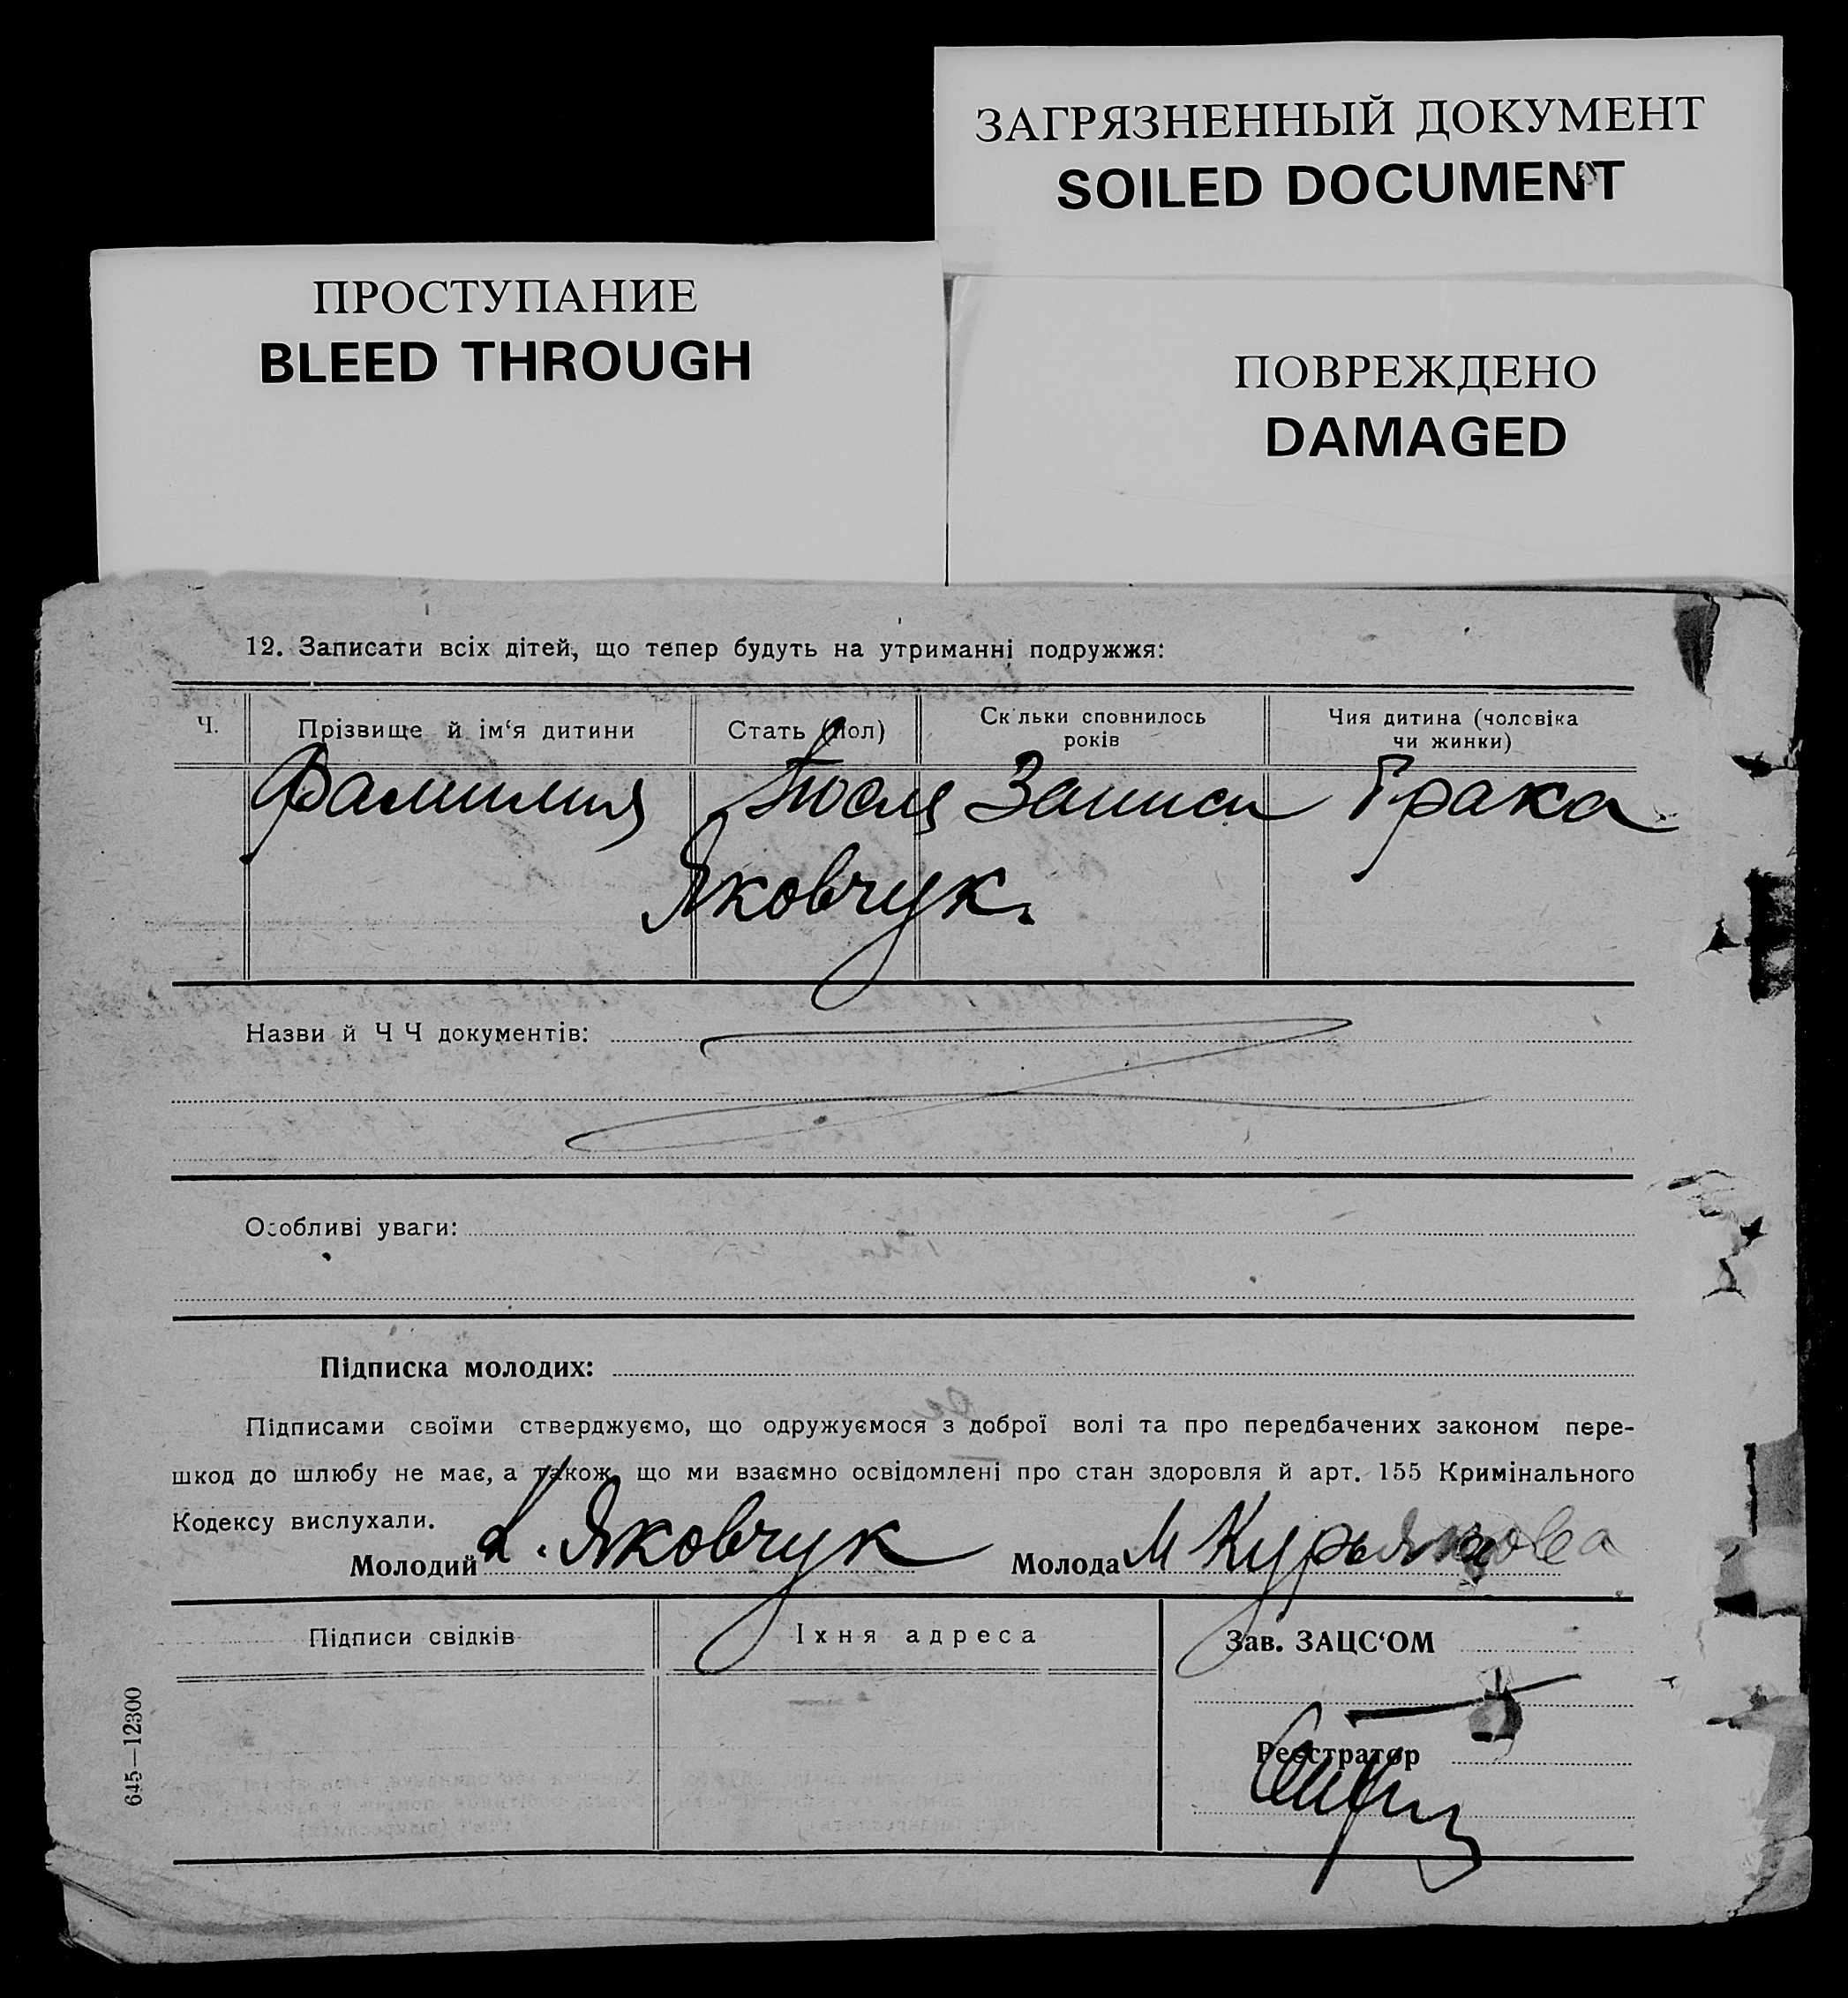 ЗАГРЯЗНЕННЫЙ ДОКУМЕНТ
SOILED DOCUMENT
ПРОСТУПАНИЕ
BLEED THROUGH
ПОВРЕЖДЕНО
DAMAGED
12. Записати всіх дітей, що тепер будуть на утриманні подружжя:
Ч.
Прізвище й ім‘я дитини
Стать (пол)
Скільки сповнилось
років
Чия дитина (чоловіка
чи жинки)
Фамилия после записи брака
Яковчук.
Назви й Ч Ч документів:
Особливі уваги:
Підписка молодих:
Підписами своїми стверджуємо, що одружуємося з доброї волі та про передбачених законом пере-
шкод до шлюбу не має, а також, що ми взаємно освідомлені про стан здоровля й арт. 155 Кримінального
Кодексу вислухали.
Молодий Яковчук Молода М Курьякова
Підписи свідків
Їхня адреса
Зав. ЗАЦС‘ОМ
Реєстратор
645—12300